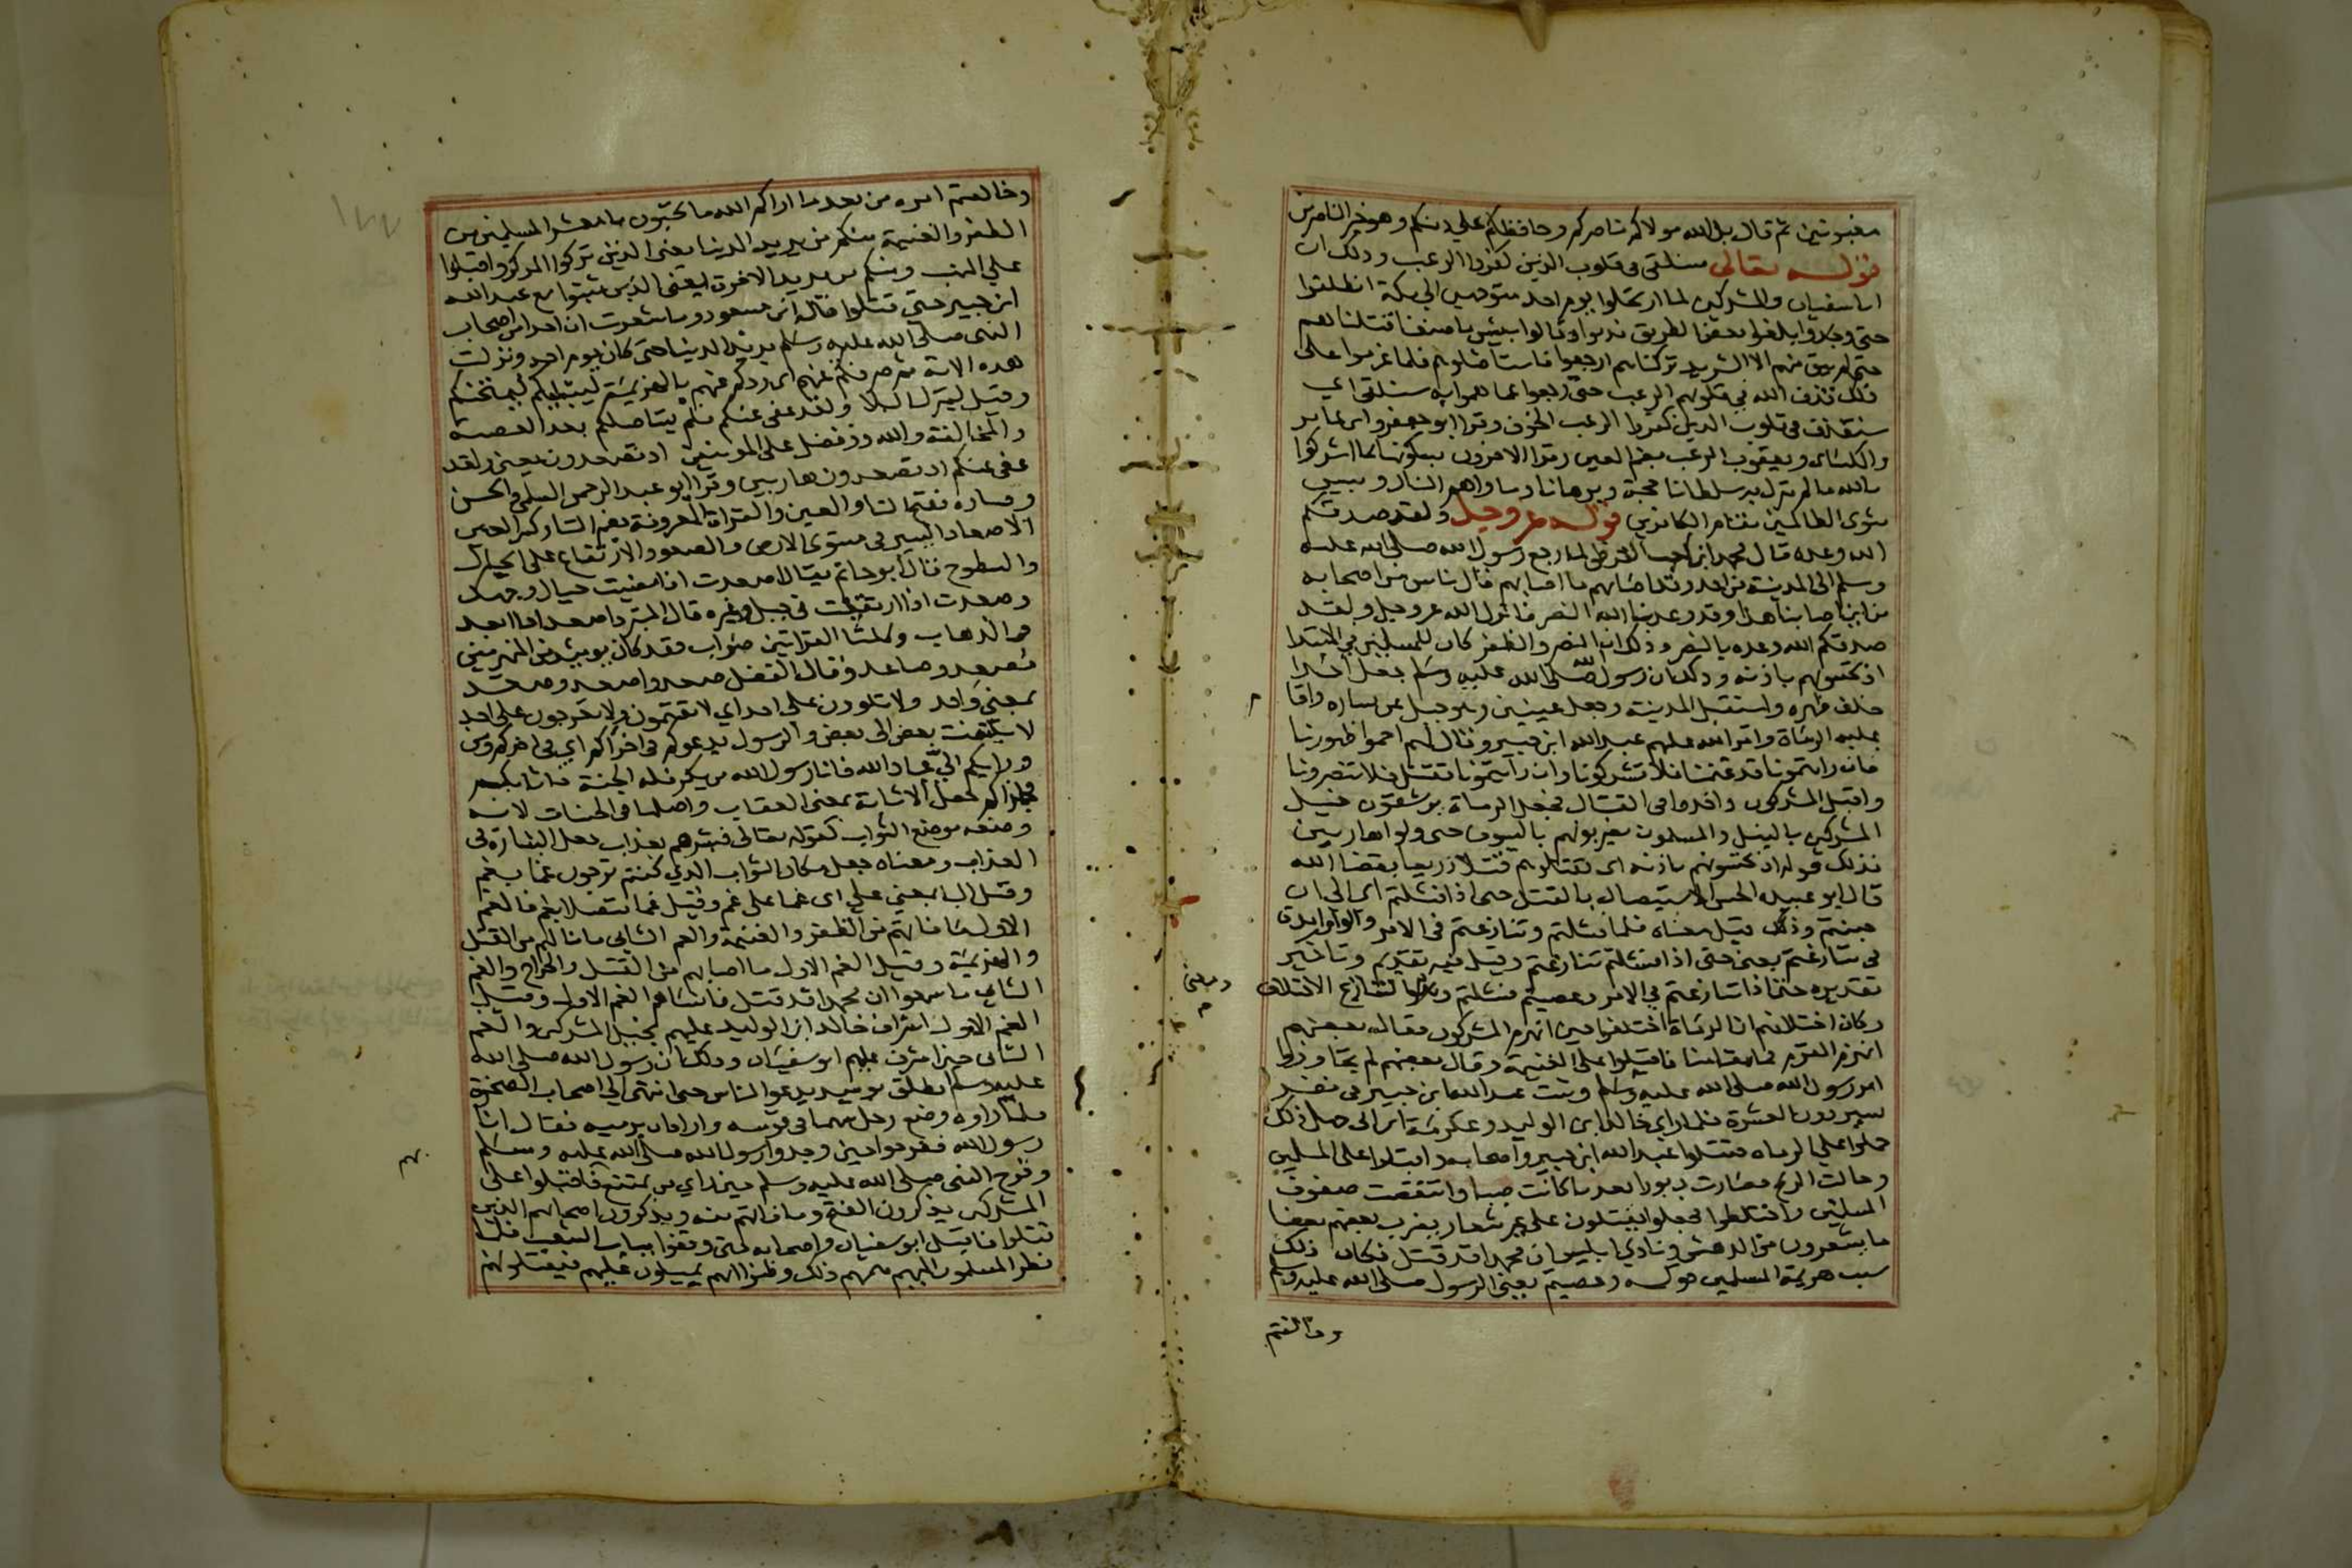 مغبونين ثم قال بل الله مولاكم ناصركم وحافظكم على دينكم وهو خير الناصرين
قوله تعالى سنلقى فى قلوب الذين كفروا الرعب وذلك ان
ابا سفيان والمشركين لما ارتحلوا يوم احد متوجهين الى مكة انطلقوا
حتى بلغوا بعض الطريق ندموا وقالوا بيس ما صنعنا قتلناهم
حتى لم يبق منهم الا الشريد تركناهم ارجعوا فاستاصلوهم فلما عزموا على
ذلك قذف الله في قلوبهم الرعب حتى رجعوا عما هموا به سنلقى اي
سنقذف فى قلوب الذين كفروا الرعب الخوف وقرا ابو جعفر وابن عامر
والكساى ويعقوب الرعب بضم العين وقرا الاخرون بسكونها بما اشركوا
بالله ما لم ينزل به سلطانا حجة وبرهانا وماواهم النار وبيس
مثوى الظالمين مقام الكافرين قوله عز وجل ولقد صدقكم
الله وعده قال محمد ابن كعب القرظى لما رجع رسول الله صلى الله عليه
وسلم الى المدينة من احد وقد اصابهم ما اصابهم قال ناس من اصحابه
من اين اصابنا هذا وقد وعدنا الله النصر فانزل الله عز وجل ولقد
صدقكم الله وعده بالنصر وذلك ان النصر والظفر كان للمسلمين في الابتدا
اذ تحسونهم باذنه وذلك ان رسول الله صلى الله عليه وسلم جعل احدا
خلف ظهره واستقبل المدينة وجعل عينين وهو جبل عن يساره واقام
عليه الرماة وامر عليهم عبد الله ابن جبير وقال لهم احموا ظهورنا
فان رايتمونا قد غنمنا فلا تشركونا وان رايتمونا نقتل فلا تنصرونا
واقبل المشركون واخذوا فى القتال فجعل الرماة يرشقون خيل
المشركين بالنبل والمسلمون يضربونهم بالسيوف حتى ولوا هاربين
فذلك قوله اذ تحسونهم باذنه اى تقتلونهم قتلا ذريعا بقضا الله
قال ابو عبيد الحس الاستيصال بالقتل حتى اذا فشلتم اى الى ان
جبنتم وذلك قيل معناه فلما فشلتم وتنازعتم فى الامر والواو زايدة
فى تنازعتم يعنى حتى اذا فشلتم تنازعتم وقيل فيه تقديم وتاخير
تقديره حتى اذا تنازعتم في الامر وعصيتم فشلتم التنازع الاختلاف
وكان اختلافهم ان الرماة اختلفوا حين انهزم المشركون فقال بعضهم
انهزم القوم فما مقامنا فاقبلوا على الغنيمة وقال بعضهم لم يجاوزوا
امر رسول الله صلى الله عليه وسلم وثبت عبد الله ابن جبير فى نفر
يسير دون العشرة فلما راى خالد ابن الوليد وعكرمة ابن ابى جهل ذلك
حملوا على الرماه فقتلوا عبد الله ابن جبير واصحابه واقبلوا على المسلمين
وحالت الريح فصارت دبورا بعد ما كانت صبا وانتقضت صفوف
المسلمين واختلطوا فجعلوا يقتلون على غير شعار يضرب بعضهم بعضا
ما يشعرون من الدهش ونادى ابليس ان محمدا قد قتل فكان ذلك
سبب هزيمة المسلمين قوله وعصيتم يعنى الرسول صلى الله عليه وسلم
وخالفتم
وخالفتم امره من بعد ما اراكم الله ما تحبون يا معشر المسلمين من
الظفر والغنيمة منكم من يريد الدنيا يعنى الذين تركوا المركز واقبلوا
على النهب ومنكم من يريد الاخرة يعنى الذين ثبتوا مع عبد الله
ابن جبير حتى قتلوا قال ابن مسعود وما شعرت ان احدا من اصحاب
النبى صلى الله عليه وسلم يريد الدنيا حتى كان يوم احد ونزلت
هذه الاية ثم صرفكم عنهم اى ردكم عنهم بالهزيمة ليبتليكم ليمتحنكم
وقيل لينزل البلا ولقد عفى عنكم فلم يستاصلكم بعد المعصية
والمخالفة والله ذو فضل على المومنين اذ تصعدون يعنى ولقد
عفى عنكم اذ تصعدون هاربين وقرا ابو عبد الرحمن السلمى والحسن
وقتاده بفتح التا والعين والقراة المعروفة بضم التا وكسر العين
الاصعاد السير فى مستوى الارض والصعود الارتفاع على الجبال
والسطوح قال ابو حاتم يقال اصعدت اذا مضيت حيال وجهك
وصعدت اذا ارتقيت فى جبل وغيره قال المبرد اصعد اذا ابعد
فى الذهاب وكلتا القراتين صواب فقد كان يوميذ من المنهزمين
مصعد وصاعد وقال المفضل صعد واصعد وصعد
بمعنى واحد ولا تلوون على احد اي لا تقيمون ولا تعرجون على احد
لا يلتفت بعض الى بعض والرسول يدعوكم فى اخراكم اي فى اخركم ومن
ورايكم الي عباد الله فانا رسول الله من يكر فله الجنة فاثابكم
فجازاكم جعل الاثابة بمعنى العقاب واصلها فى الحسنات لانه
وضعه موضع الثواب كقوله تعالى فبشرهم بعذاب جعل البشارة فى
العذاب ومعناه جعل مكان الثواب الذي كنتم ترجون غما بغم
وقيل البا بمعنى على اى غما على غم وقيل غما متصلا بغم فالغم
الاول ما فاتهم من الظفر والغنيمة والغم الثانى ما نالهم من القتل
والهزيمة وقيل الغم الاول ما اصابهم من القتل والجراح والغم
الثانى ما سمعوا ان محمدا قد قتل فانساهم الغم الاول وقيل
الغم الاول اشراف خالد ابن الوليد عليهم بخيل المشركين والغم
الثانى حين اشرف عليهم ابو سفيان وذلك ان رسول الله صلى الله
عليه وسلم انطلق يوميذ يدعو الناس حتى انتهى الى اصحاب الصخرة
فلما راوه وضع رجل سهما فى قوسه واراد ان يرميه فقال انا
رسول الله ففرحوا حين وجدوا رسول الله صلى الله عليه وسلم
وفرح النبى صلى الله عليه وسلم حين راى من يمتنع فاقبلوا على
المشركين يذكرون الفتح وما فاتهم منه ويذكرون اصحابهم الذين
قتلوا فاقبل ابو سفيان واصحابه حتى وقفوا بباب الشعب فلما
نظر المسلمون اليهم همهم ذلك وظنوا انهم يميلون عليهم فيقتلونهم